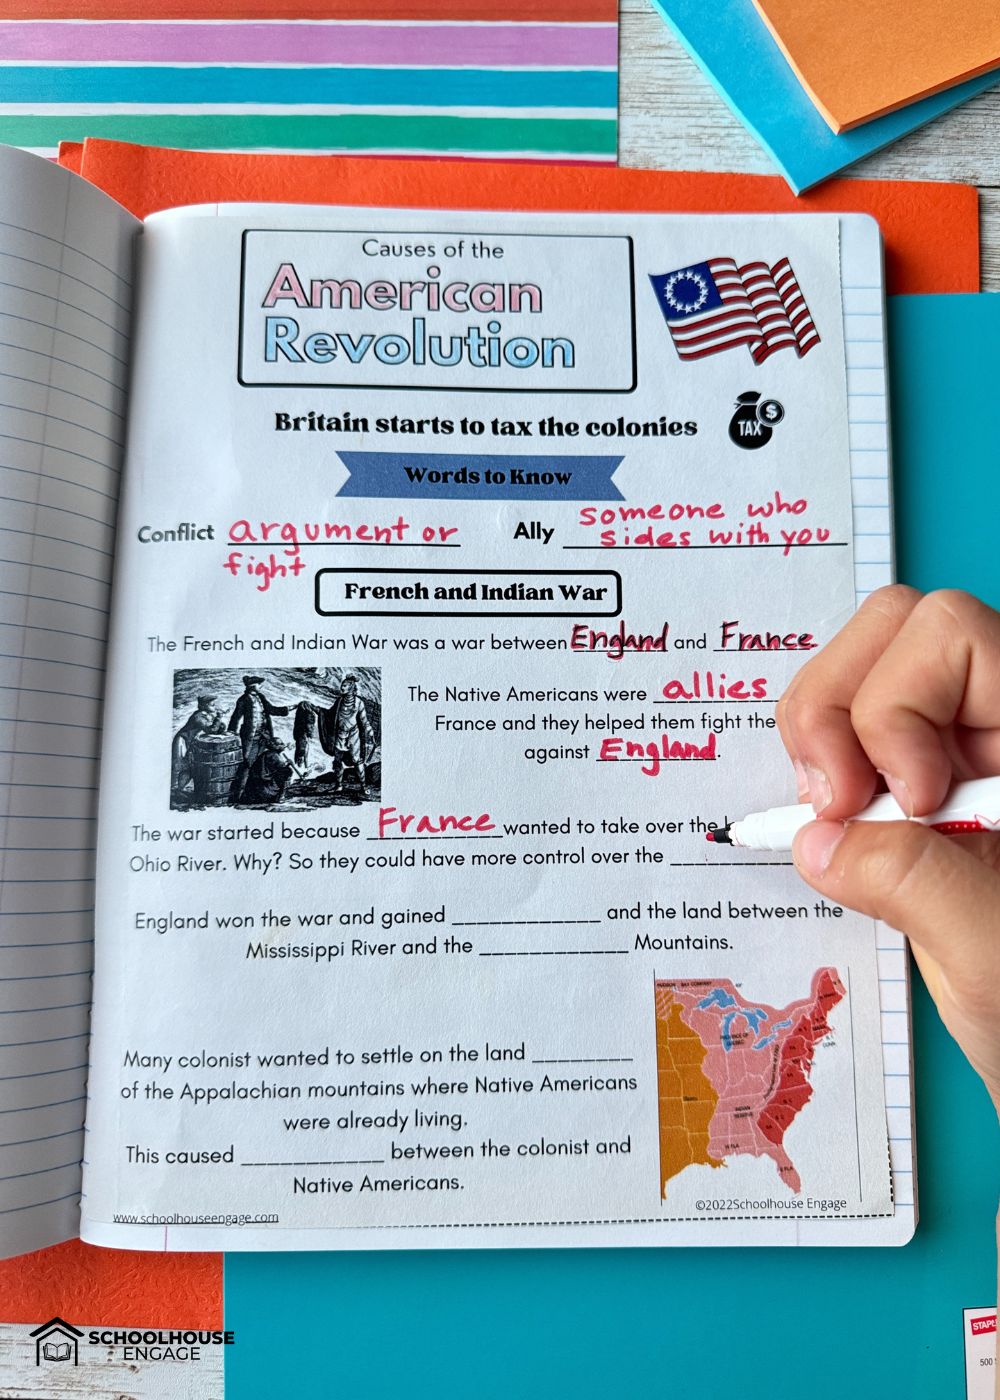 Causes of the
American
Revolution
Britain starts to tax the colonies
TAX
$
Words to Know
Conflict argument or Ally someone who
fight sides with you
French and Indian War
The French and Indian War was a war between England and France
The Native Americans were allies
France and they helped them fight the
against England.
The war started because France wanted to take over the
Ohio River. Why? So they could have more control over the ___________
England won the war and gained ____________ and the land between the
Mississippi River and the ____________ Mountains.
HUDSON BAY COMPANY
PROVINCE OF
QUEBEC
INDIAN
RESERVE
Many colonist wanted to settle on the land ________
of the Appalachian mountains where Native Americans
were already living.
This caused ____________ between the colonist and
Native Americans.
www.schoolhouseengage.com
©2022Schoolhouse Engage
SCHOOLHOUSE
ENGAGE
STAPL
500